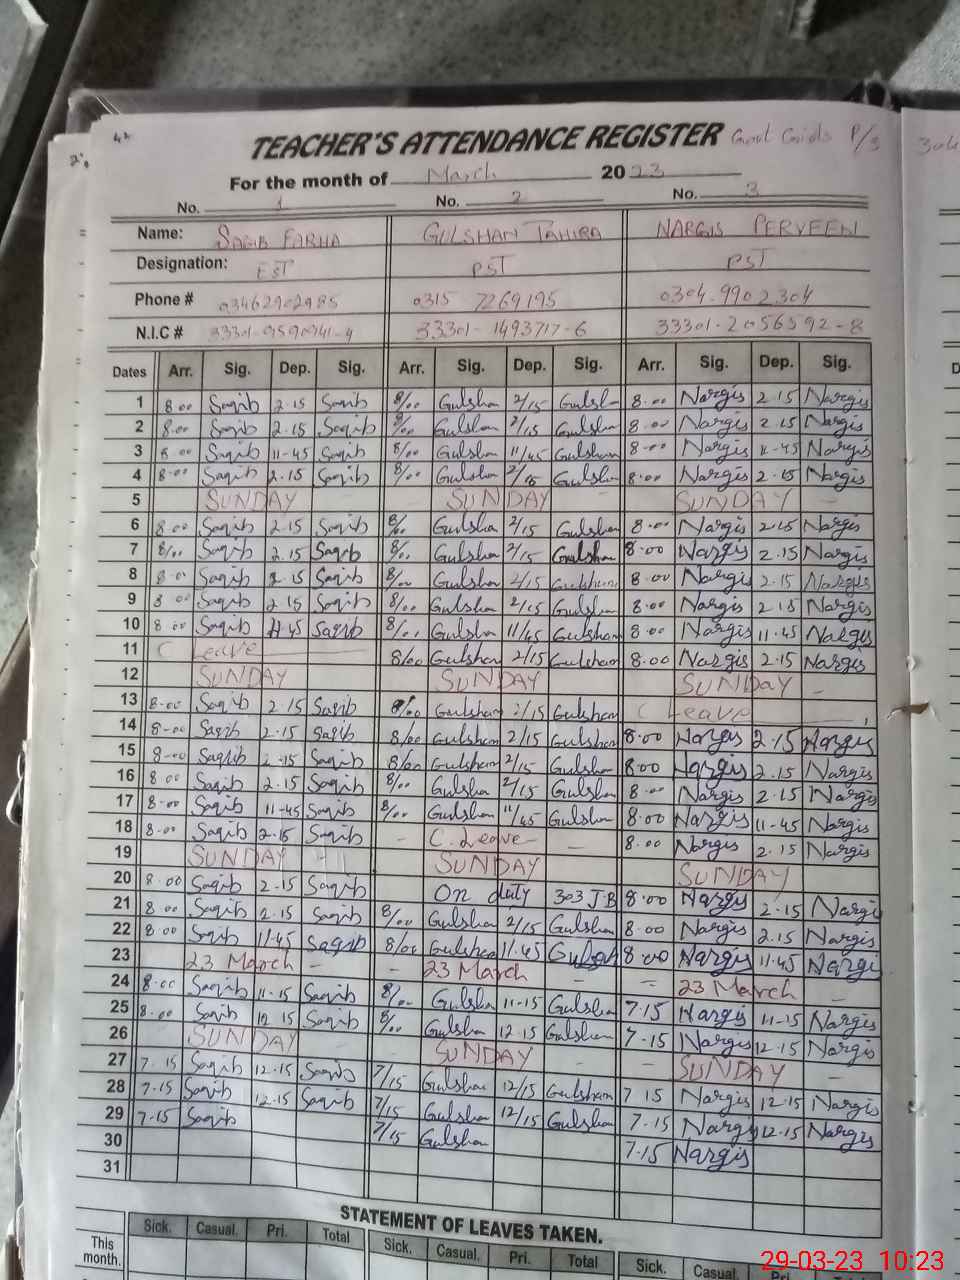 42
TEACHER'S ATTENDANCE REGISTER P/3
For the month of March 2023
No. 1 No. 2 No. 3
Name: SAQIB FARHA GULSHAN TAHIRA NARGIS PERVEEN
Designation: EST PST PST
Phone # 03462902985 0315 7269195 0304-9902304
N.I.C # 33301-9590941-4 33301-1493717-6 33301-2056592-8
Dates Arr. Sig. Dep. Sig. Arr. Sig. Dep. Sig. Arr. Sig. Dep. Sig.
1 8.00 Saqib 2.15 Saqib 8/00 Gulshan 2/15 Gulshan 8.00 Nargis 2.15 Nargis
2 8.00 Saqib 2.15 Saqib 8/00 Gulshan 2/15 Gulshan 8.00 Nargis 2.15 Nargis
3 8.00 Saqib 11-45 Saqib 8/00 Gulshan 11/45 Gulshan 8.00 Nargis 11.45 Nargis
4 8.00 Saqib 2.15 Saqib 8/00 Gulshan 2/15 Gulshan 8.00 Nargis 2.15 Nargis
5 SUNDAY SUNDAY SUNDAY
6 8.00 Saqib 2.15 Saqib 8/00 Gulshan 2/15 Gulshan 8.00 Nargis 2.15 Nargis
7 8/00 Saqib 2.15 Saqib 8/00 Gulshan 2/15 Gulshan 8.00 Nargis 2.15 Nargis
8 8.00 Saqib 2.15 Saqib 8/00 Gulshan 2/15 Gulshan 8.00 Nargis 2.15 Nargis
9 8.00 Saqib 2.15 Saqib 8/00 Gulshan 2/15 Gulshan 8.00 Nargis 2.15 Nargis
10 8.00 Saqib 11.45 Saqib 8/00 Gulshan 11/45 Gulshan 8.00 Nargis 11.45 Nargis
11 C Leave 8/00 Gulshan 2/15 Gulshan 8.00 Nargis 2.15 Nargis
12 SUNDAY SUNDAY SUNDAY
13 8.00 Saqib 2.15 Saqib 8/00 Gulshan 2/15 Gulshan C Leave
14 8.00 Saqib 2.15 Saqib 8/00 Gulshan 2/15 Gulshan 8.00 Nargis 2.15 Nargis
15 8.00 Saqib 2.15 Saqib 8/00 Gulshan 2/15 Gulshan 8.00 Nargis 2.15 Nargis
16 8.00 Saqib 2.15 Saqib 8/00 Gulshan 2/15 Gulshan 8.00 Nargis 2.15 Nargis
17 8.00 Saqib 11-45 Saqib 8/00 Gulshan 11/45 Gulshan 8.00 Nargis 11-45 Nargis
18 8.00 Saqib 2.15 Saqib C. Leave 8.00 Nargis 2.15 Nargis
19 SUNDAY SUNDAY SUNDAY
20 8.00 Saqib 2.15 Saqib On duty 303 J.B 8.00 Nargis 2.15 Nargis
21 8.00 Saqib 2.15 Saqib 8/00 Gulshan 2/15 Gulshan 8.00 Nargis 2.15 Nargis
22 8.00 Saqib 11.45 Saqib 8/00 Gulshan 11.45 Gulshan 8.00 Nargis 11.45 Nargis
23 23 March 23 March 23 March
24 8.00 Saqib 11-15 Saqib 8/00 Gulshan 11-15 Gulshan 7.15 Nargis 11-15 Nargis
25 8.00 Saqib 12.15 Saqib 8/00 Gulshan 12.15 Gulshan 7-15 Nargis 12.15 Nargis
26 SUNDAY SUNDAY SUNDAY
27 7.15 Saqib 12-15 Saqib 7/15 Gulshan 12/15 Gulshan 7 15 Nargis 12.15 Nargis
28 7-15 Saqib 12.15 Saqib 7/15 Gulshan 12/15 Gulshan 7.15 Nargis 12.15 Nargis
29 7-15 Saqib 7/15 Gulshan 7.15 Nargis
30
31
STATEMENT OF LEAVES TAKEN.
Sick. Casual. Pri. Total Sick. Casual. Pri. Total Sick. Casual. Pri.
This month.
29-03-23 10:23